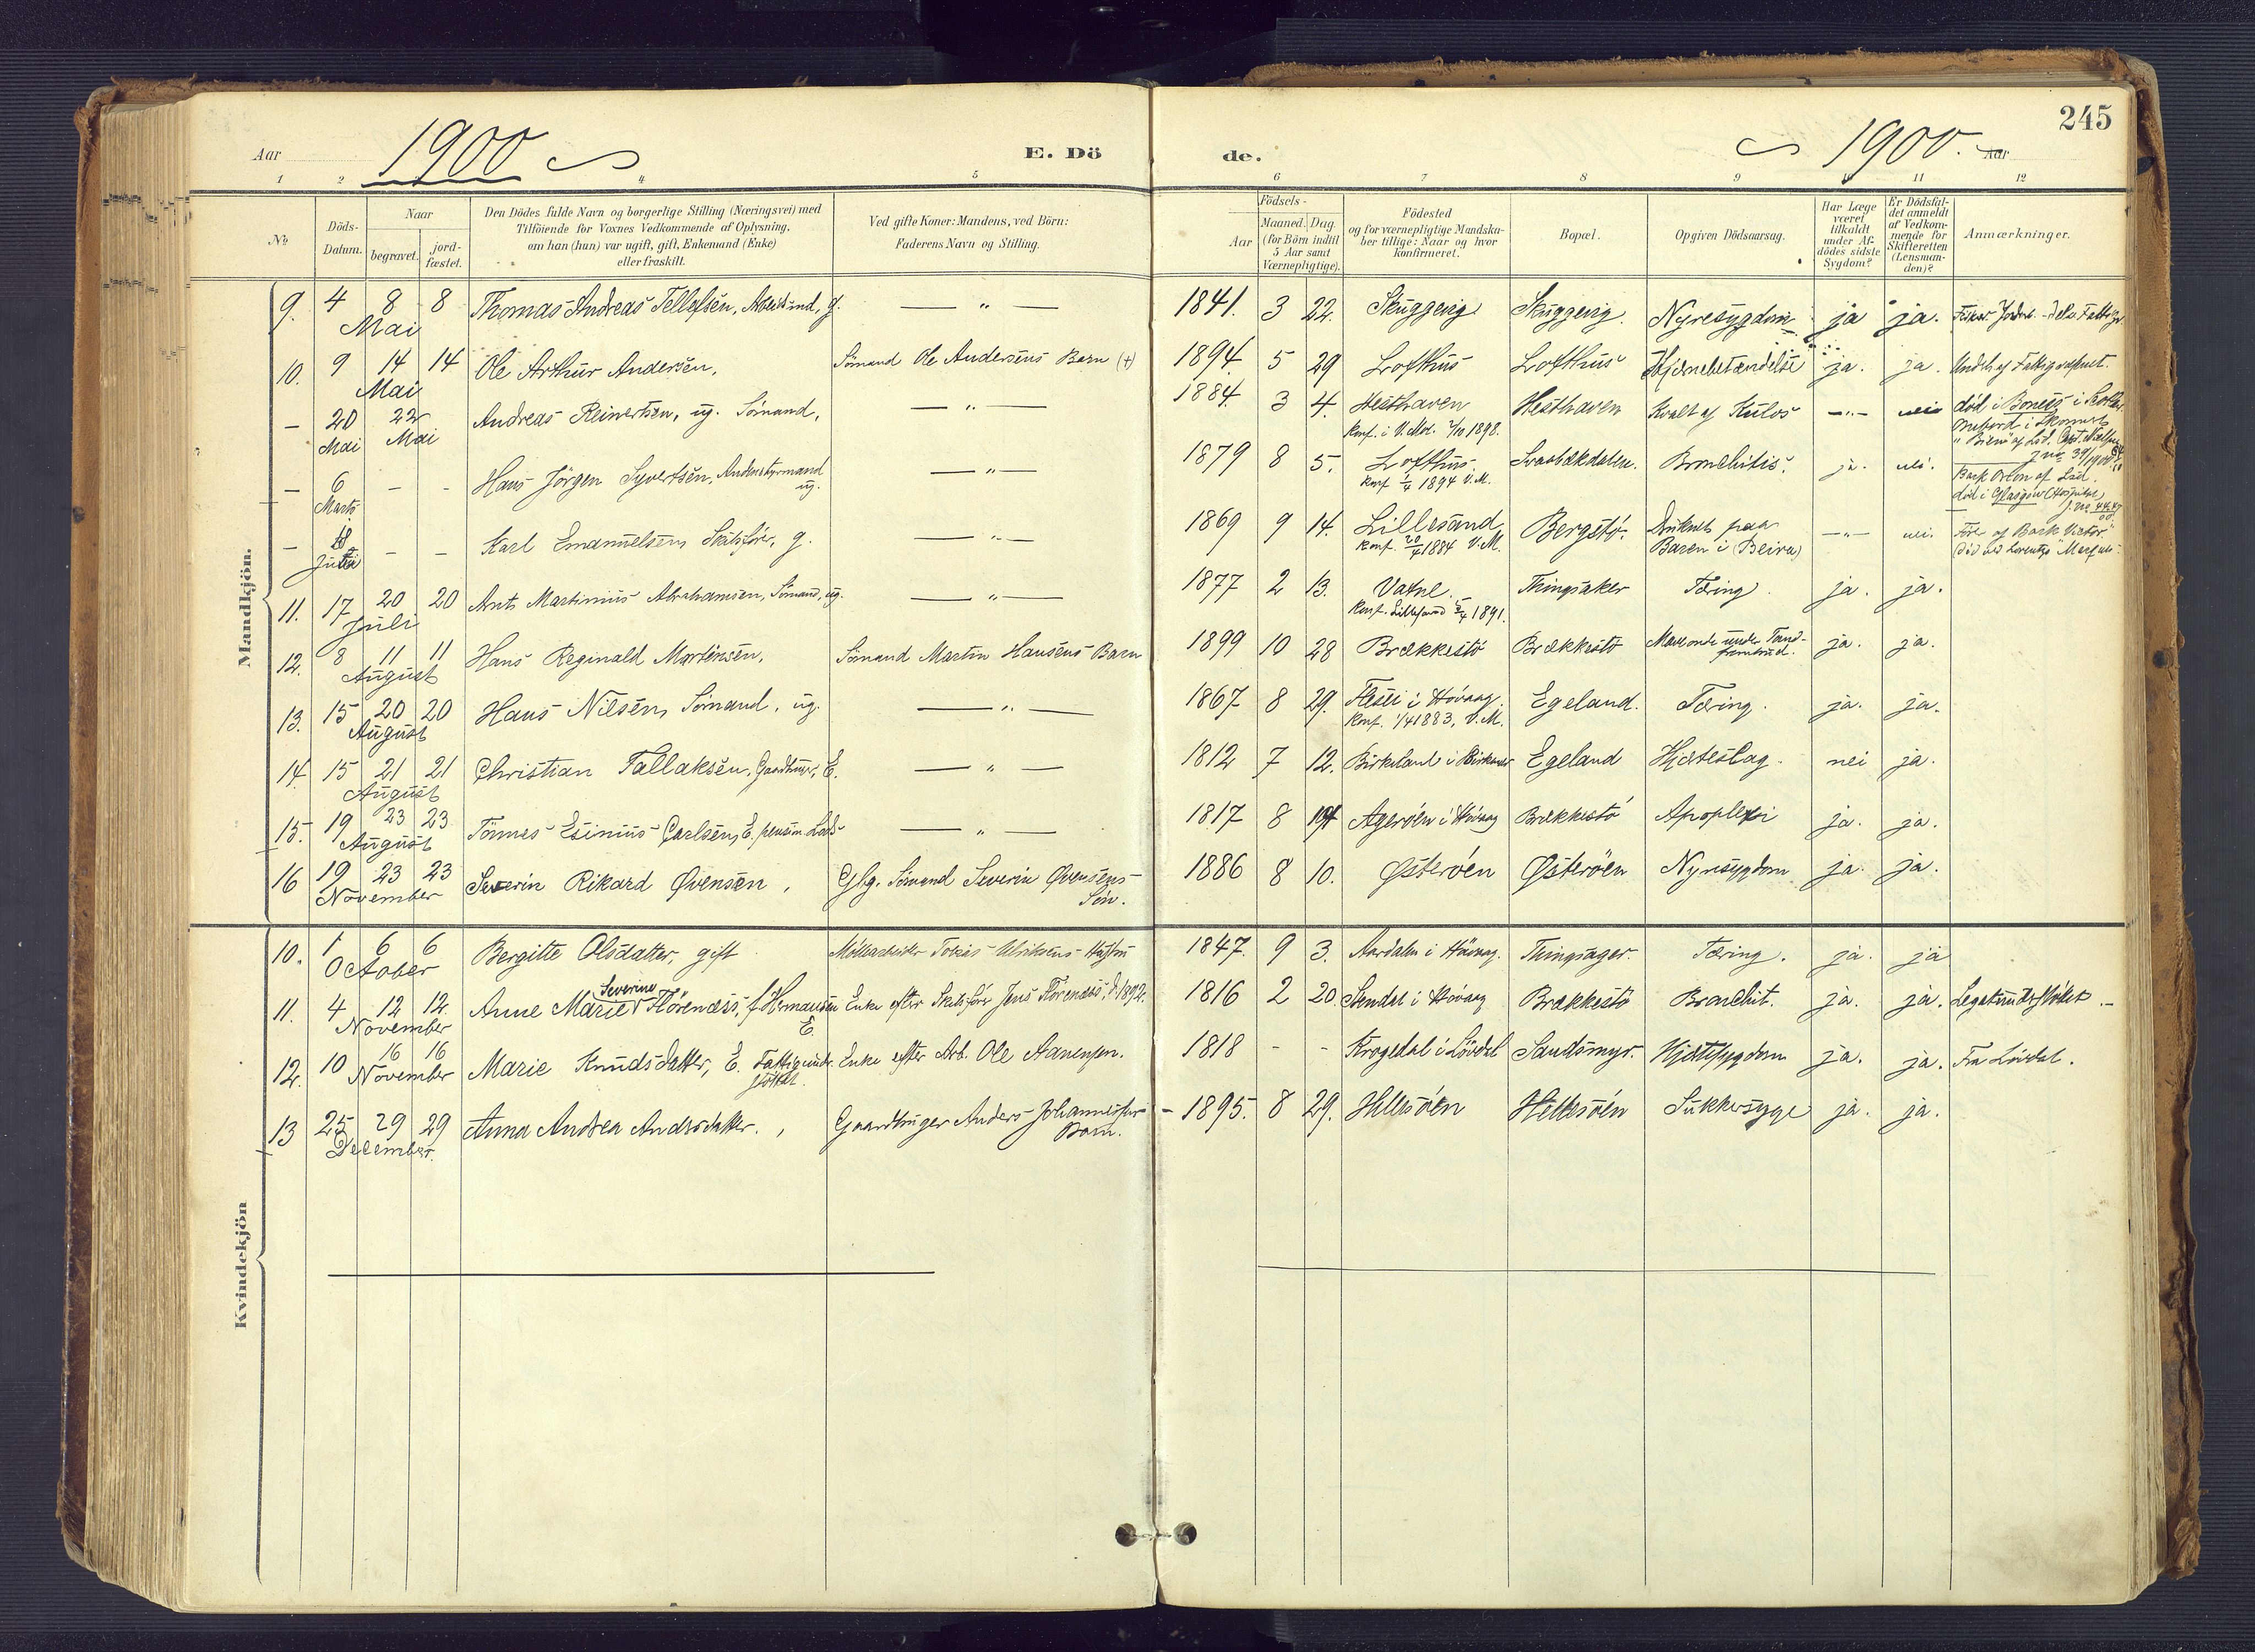 245
Aar 1900 E. Dö de. 1900. Aar
1 2 4 5 6 7 8 9 10 11 12
№ Döds-Datum. Naar begravet. jord-fæstet. Den Dödes fulde Navn og borgerlige Stilling (Næringsvei) med Tilföiende for Voxnes Vedkommende af Oplysning, om han (hun) var ugift, gift, Enkemand (Enke) eller fraskilt. Ved gifte Koner: Mandens, ved Börn: Faderens Navn og Stilling. Aar Födsels- Maaned. Dag (for Börn indtil 5 Aar samt Værnepligtige). Födested og for værnepligtige Mandskaber tillige: Naar og hvor konfirmeret. Bopæl. Opgiven Dödsaarsag. Har Læge været tilkaldt under Afdödes sidste Sygdom? Er Dödsfaldet anmeldt af Vedkommende for Skifteretten (Lensmanden)? Anmærkninger.
Mandkjön.
9. 4 8 8 Mai Thomas Andreas Tellefsen, Arbeidsmd, g. — " — 1841. 3 22. Skuggevig Skuggevig. Nyresygdom ja ja.
10. 9 14 14 Mai Ole Arthur Andersen. Sömand Ole Andersens Barn (+) 1894. 5 29 Lofthus Lofthus Hjernebetændelse ja. ja. Underh. af Fattigvæsnet.
— 20 Mai 22 Mai Andreas Reinertsen, ug. Sömand, — " — 1884. 3 4. Hesthaven Konf. i V. Mol. 2/10 1898. Hesthaven Kvalt af Kulos — " — nei död i Boness i Skotl. ombord i Skonnert
— 6 Marts - - Hans Jörgen Syvertsen, Understyrmand ug. — " — 1879 8 5. Lofthus Konf 1/4 1894 V. M. Svartbækdalen. Bronchitis. ja. nei. Bark Orion af Lsd. död i Glasgow (Hospital)
— 18 Juli - - Karl Emanuelsen Skibsförer, g. — " — 1869 9 14. Lillesand Konf. 20/4 1884 V. M. Bergstö. Druknet paa Baren i (Beira) — " — nei. Förer af Bark "Victor"
11. 17 20 20 Juli Arnts Martinius Abrahamsen, Sömand, ug. — " — 1877 2 13. Vatne. Konf. Lillesand 5/4 1891. Thingsaker Tæring. ja. ja.
12. 8 11 11 August Hans Reginald Martinsen, Sömand Martin Hansens Barn 1899 10 28 Brækkestö Brækkestö Maveonde under Tandfrembrud. ja. ja.
13. 15 20 20 August Hans Nilsen, Sömand, ug. — " — 1867 8 29. i Hövaag. Konf. 1/4 1883, V. M. Egeland. Tæring. ja. ja.
14. 15 21 21 August Christian Tallaksen, Gaardbruger, E. — " — 1812 7 12. Birkeland i Birkenes Egeland Hjerteslag. nei ja.
15. 19 23 23 August Tönnes Esinius Carlsen, E. pension. Lods — " — 1817 8 Agerøen i Hövaag Brækkestö Apoplexi ja. ja.
16 19 23 23 November Severin Rikard Øvensen, Glg. Sömand Severin Øvensens Sön. 1886 8 10. Østeröen Østeröen Nyresygdom ja. ja.
Kvindekjön
10. 1 6 6 October Bergitte Olsdatter, gift Möllearbeider Tobias Ulriksens Hustru 1847. 9 3. Aardalen i Hövaag. Thingsager. Tæring. ja. ja
11. 4 12 12. November Anne Marie Severine Flörenæss, f. Hermansen E. Enke efter Skibsförer Jens Flörenæss, d. 1892. 1816 2 20. Stendal i Hövaag Brækkestö Bronchit. ja. ja. Legatunderstöttet.
12. 10 16 16 November Marie Knudsdatter, E. Fattigunderstöttet. Enke efter Arb. Ole Aanensen. 1818 - - Krogedal i Lövdal Sandsmyr. Hjertesygdom ja. ja. Fra Lövdal.
13 25 29 29 December. Anna Andrea Andersdatter. Gaardbruger Anders Johannessens Barn. 1895. 8 29. Hellesöen Hellesöen Sukkersyge ja. ja.